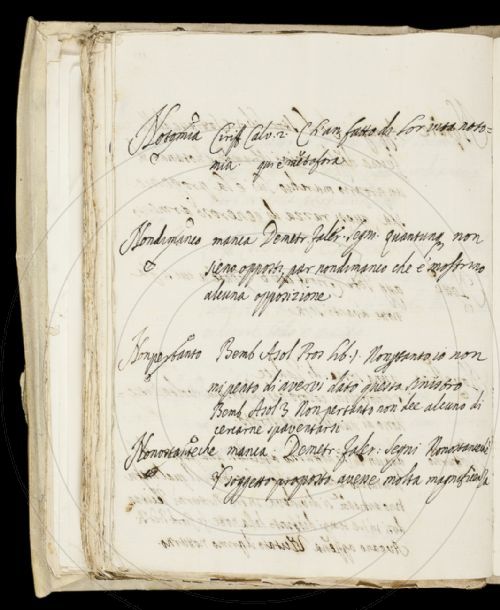 Notomia Cirif. Calv. 2. Ch'an fatto di lor una noto=
mia. qui è metafora
Nondimanco manca Demetr. Faler. Segni. quantunq non
sieno opposti, par nondimanco che e' mostrino
alcuna opposizione
Nonpertanto Bemb. Asol. Pros. lib. 1. Nonptanto io non
mi pento di avervi dato questo sinistro
Bemb. Asol. 3. Non pertanto non dee alcuno di
cercarne spaventarsi
Nonostanteche manca. Demetr. Faler. Segni Nonostanteche
'l soggetto proposto avesse molta magnificenza